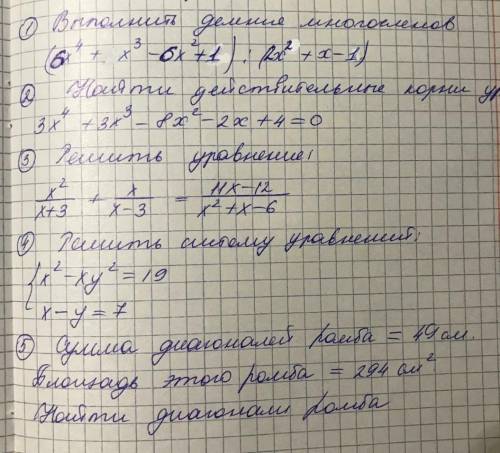 ① Выполнить деление многочленов
(6x⁴ + x³ - 6x² + 1) : (2x² + x - 1)
② Найти действительные корни ур
3x⁴ + 3x³ - 8x² - 2x + 4 = 0
③ Решить уравнение:
x²/(x+3) + x/(x-3) = (11x-12)/(x²+x-6)
④ Решить систему уравнений:
{ x² - xy² = 19
x - y = 7
⑤ Сумма диагоналей ромба = 49 см.
Площадь этого ромба = 294 см²
Найти диагонали ромба